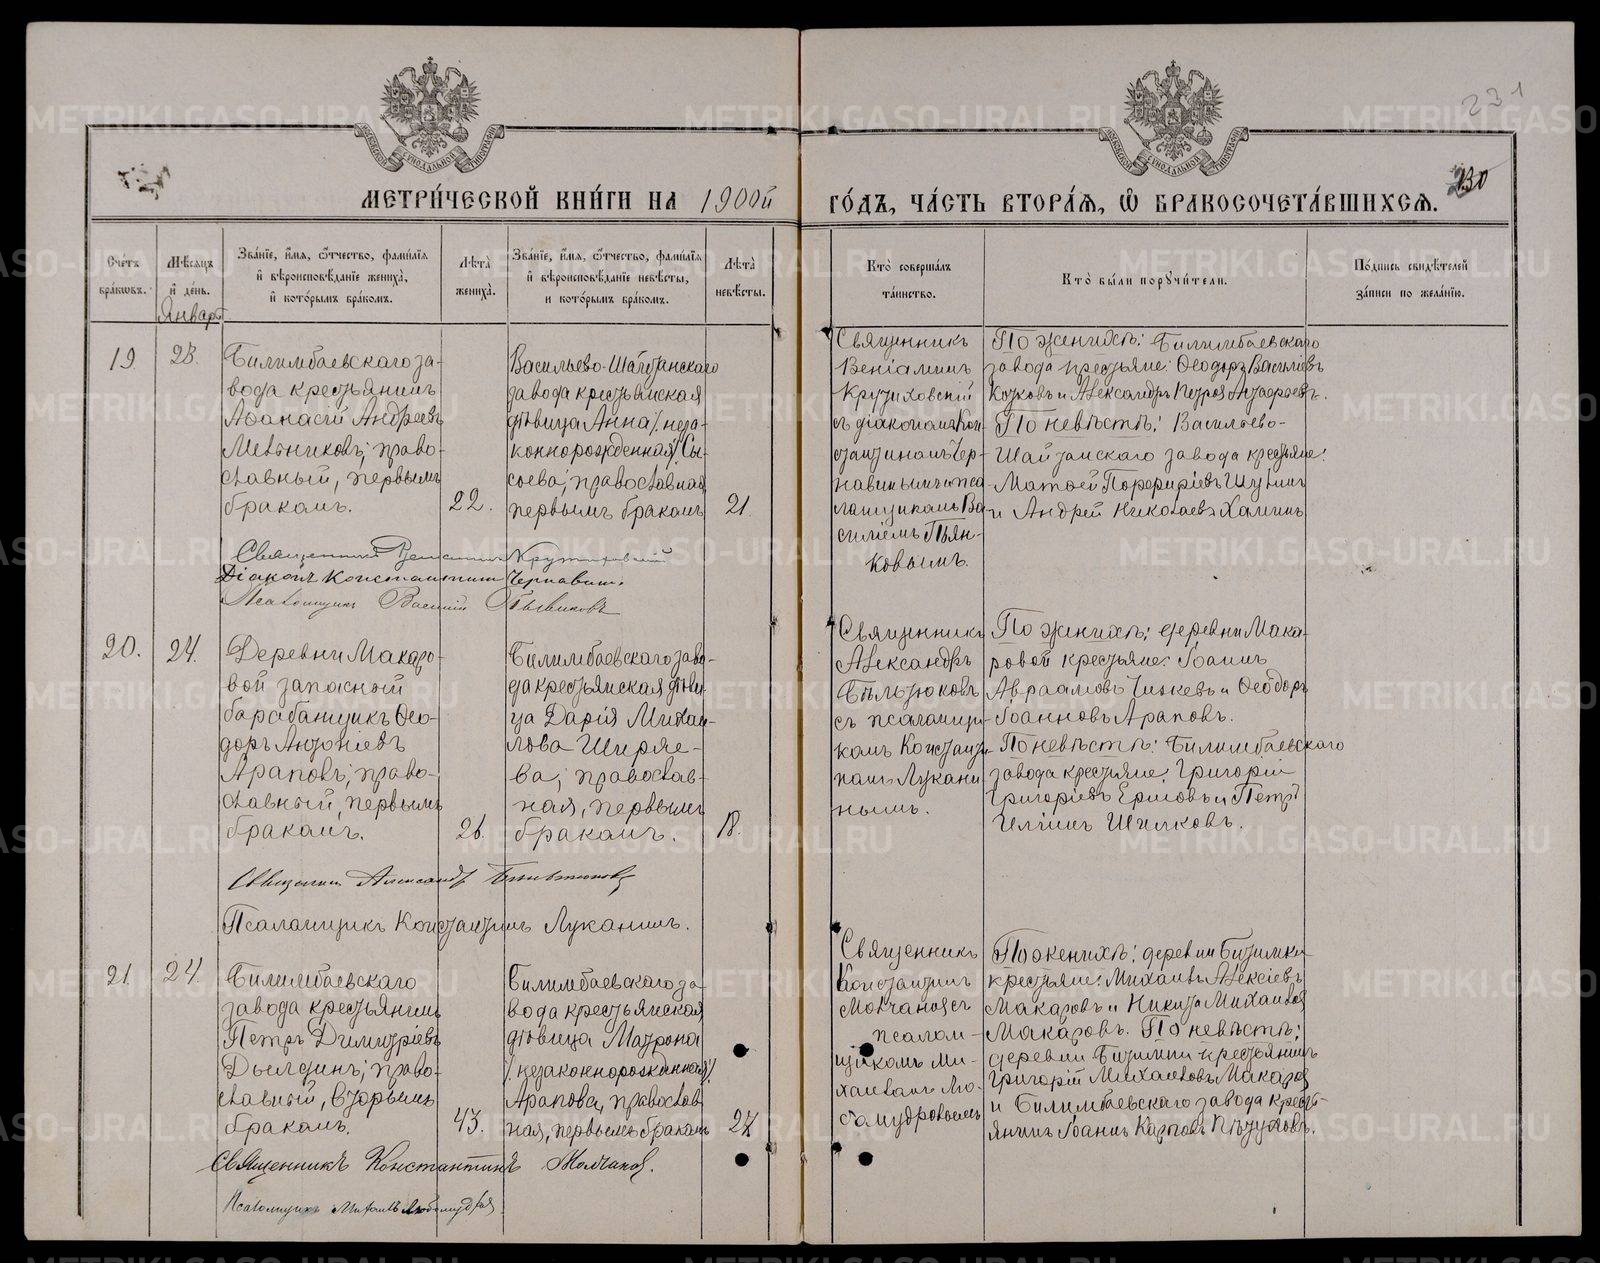 231
130
МЕТРИ́ЧЕСКОЙ КНИ́ГИ НА 1900й ГО́ДЪ, ЧА́СТЬ ВТОРА́Я, Ѿ БРАКОСОЧЕТА́ВШИХСЯ.
Счетъ браковъ.
Мѣсяцъ и день.
Январь
Званіе, имя, отчество, фамилія и вѣроисповѣданіе жениха, и которымъ бракомъ.
Лѣта жениха.
Званіе, имя, отчество, фамилія и вѣроисповѣданіе невѣсты, и которымъ бракомъ.
Лѣта невѣсты.
Кто совершалъ таинство.
Кто были поручители.
Подпись свидѣтелей записи по желанію.
19
23.
Билимбаевскаго за-
вода крестьянинъ
Аѳанасій Андреевъ
Мельниковъ; право-
славный, первымъ
бракомъ.
22.
Васильево-Шайтанскаго
завода крестьянская
дѣвица Анна /неза-
коннорожденная/ Сы-
соева; православная,
первымъ бракомъ
21.
Священникъ
Веніаминъ
Крутиховскій
съ діакономъ Кон-
стантиномъ Чер-
навинымъ и пса-
ломщикомъ Ва-
силіемъ Пьян-
ковымъ.
По женихѣ: Билимбаевскаго
завода крестьяне: Ѳеодоръ Васильевъ
и Александръ Петровъ
По невѣстѣ: Васильево-
Шайтанскаго завода крестьяне:
Матѳей Порфиріевъ
и Андрей Николаевъ
Священникъ Веніаминъ Крутиховскій
Діаконъ Константинъ Чернавинъ.
Псаломщикъ Василій Пьянковъ
20.
24.
Деревни Макаро-
вой запасный
барабанщикъ Ѳео-
доръ Антоніевъ
Араповъ; право-
славный, первымъ
бракомъ.
26.
Билимбаевскаго заво-
да крестьянская дѣви-
ца Дарія Михаи-
лова Ширяе-
ва; православ-
ная, первымъ
бракомъ.
18.
Священникъ
Александръ
Бѣльтюковъ
съ псаломщи-
комъ Константи-
номъ Лукани-
нымъ.
По женихѣ: деревни Мака-
ровой крестьяне: Іоаннъ
Авраамовъ и Ѳеодоръ
Іоанновъ Араповъ.
По невѣстѣ: Билимбаевскаго
завода крестьяне: Григорій
Григоріевъ Ермовъ и Петръ
Иліинъ Шилковъ.
Священникъ Александръ Бѣльтюковъ
Псаломщикъ Константинъ Луканинъ.
21.
24.
Билимбаевскаго
завода крестьянинъ
Петръ Димитріевъ
Дылдинъ; право-
славный, вторымъ
бракомъ.
43.
Билимбаевскаго за-
вода крестьянская
дѣвица Матрона
/незаконнорожденная/
Арапова, православ-
ная, первымъ бракомъ
27.
Священникъ
Константинъ
Молчановъ съ
псалом-
щикомъ Ми-
хаиломъ Лю-
бомудровымъ
По женихѣ: деревни Битимки
крестьяне: Михаилъ Алексіевъ
Макаровъ и Никита Михаиловъ
Макаровъ. По невѣстѣ:
деревни Битимки крестьянинъ
Григорій Михаиловъ Макаровъ
и Билимбаевскаго завода кресть-
янинъ Іоаннъ Карповъ Пѣтуховъ.
Священникъ Константинъ Молчановъ.
Псаломщикъ Михаилъ Любомудровъ
METRIKI.GASO-URAL.RU